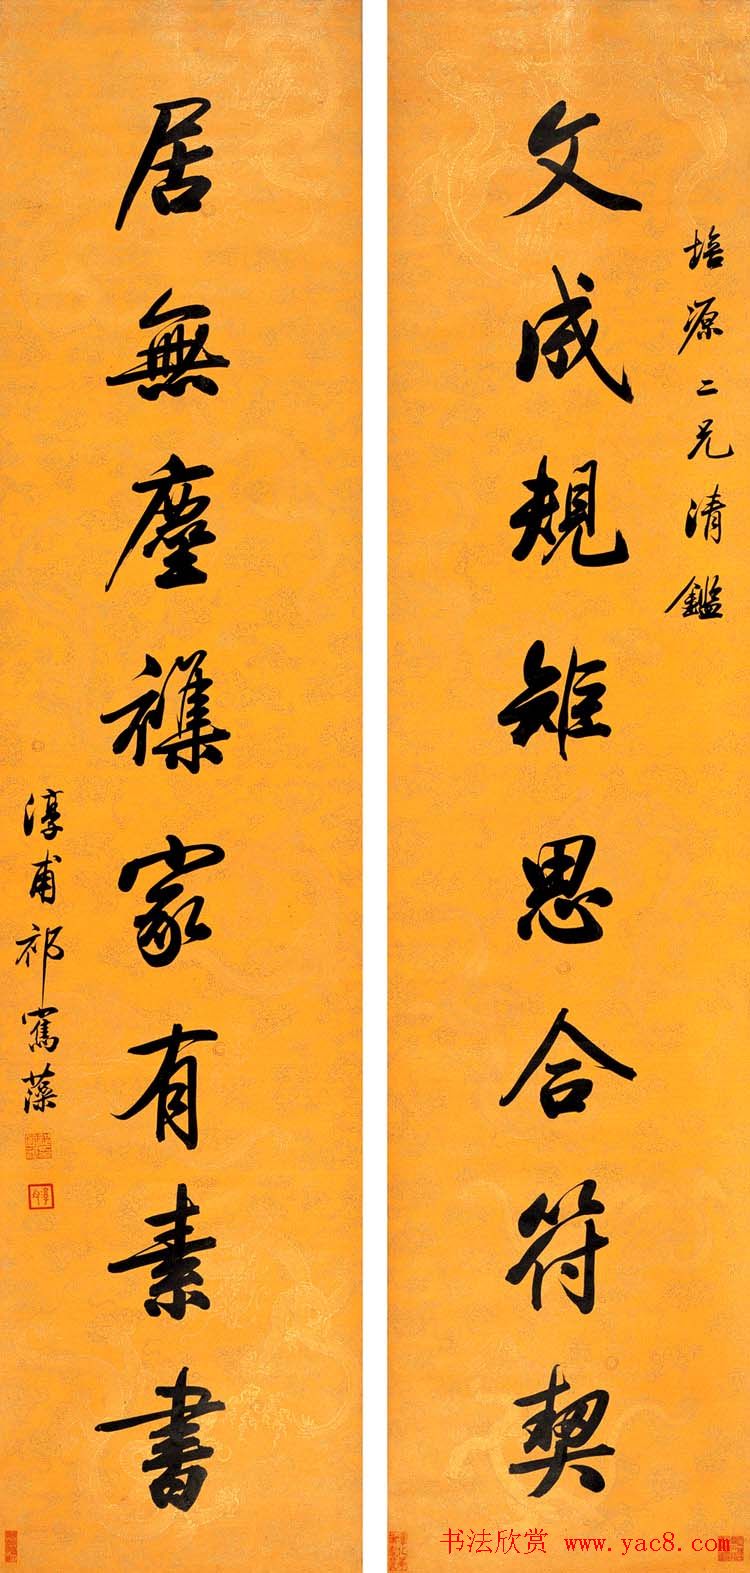 培源二兄清鑑
文成規雉思合符契
居無塵襍家有素書
淳甫祁寯藻
书法欣赏 www.yac8.com